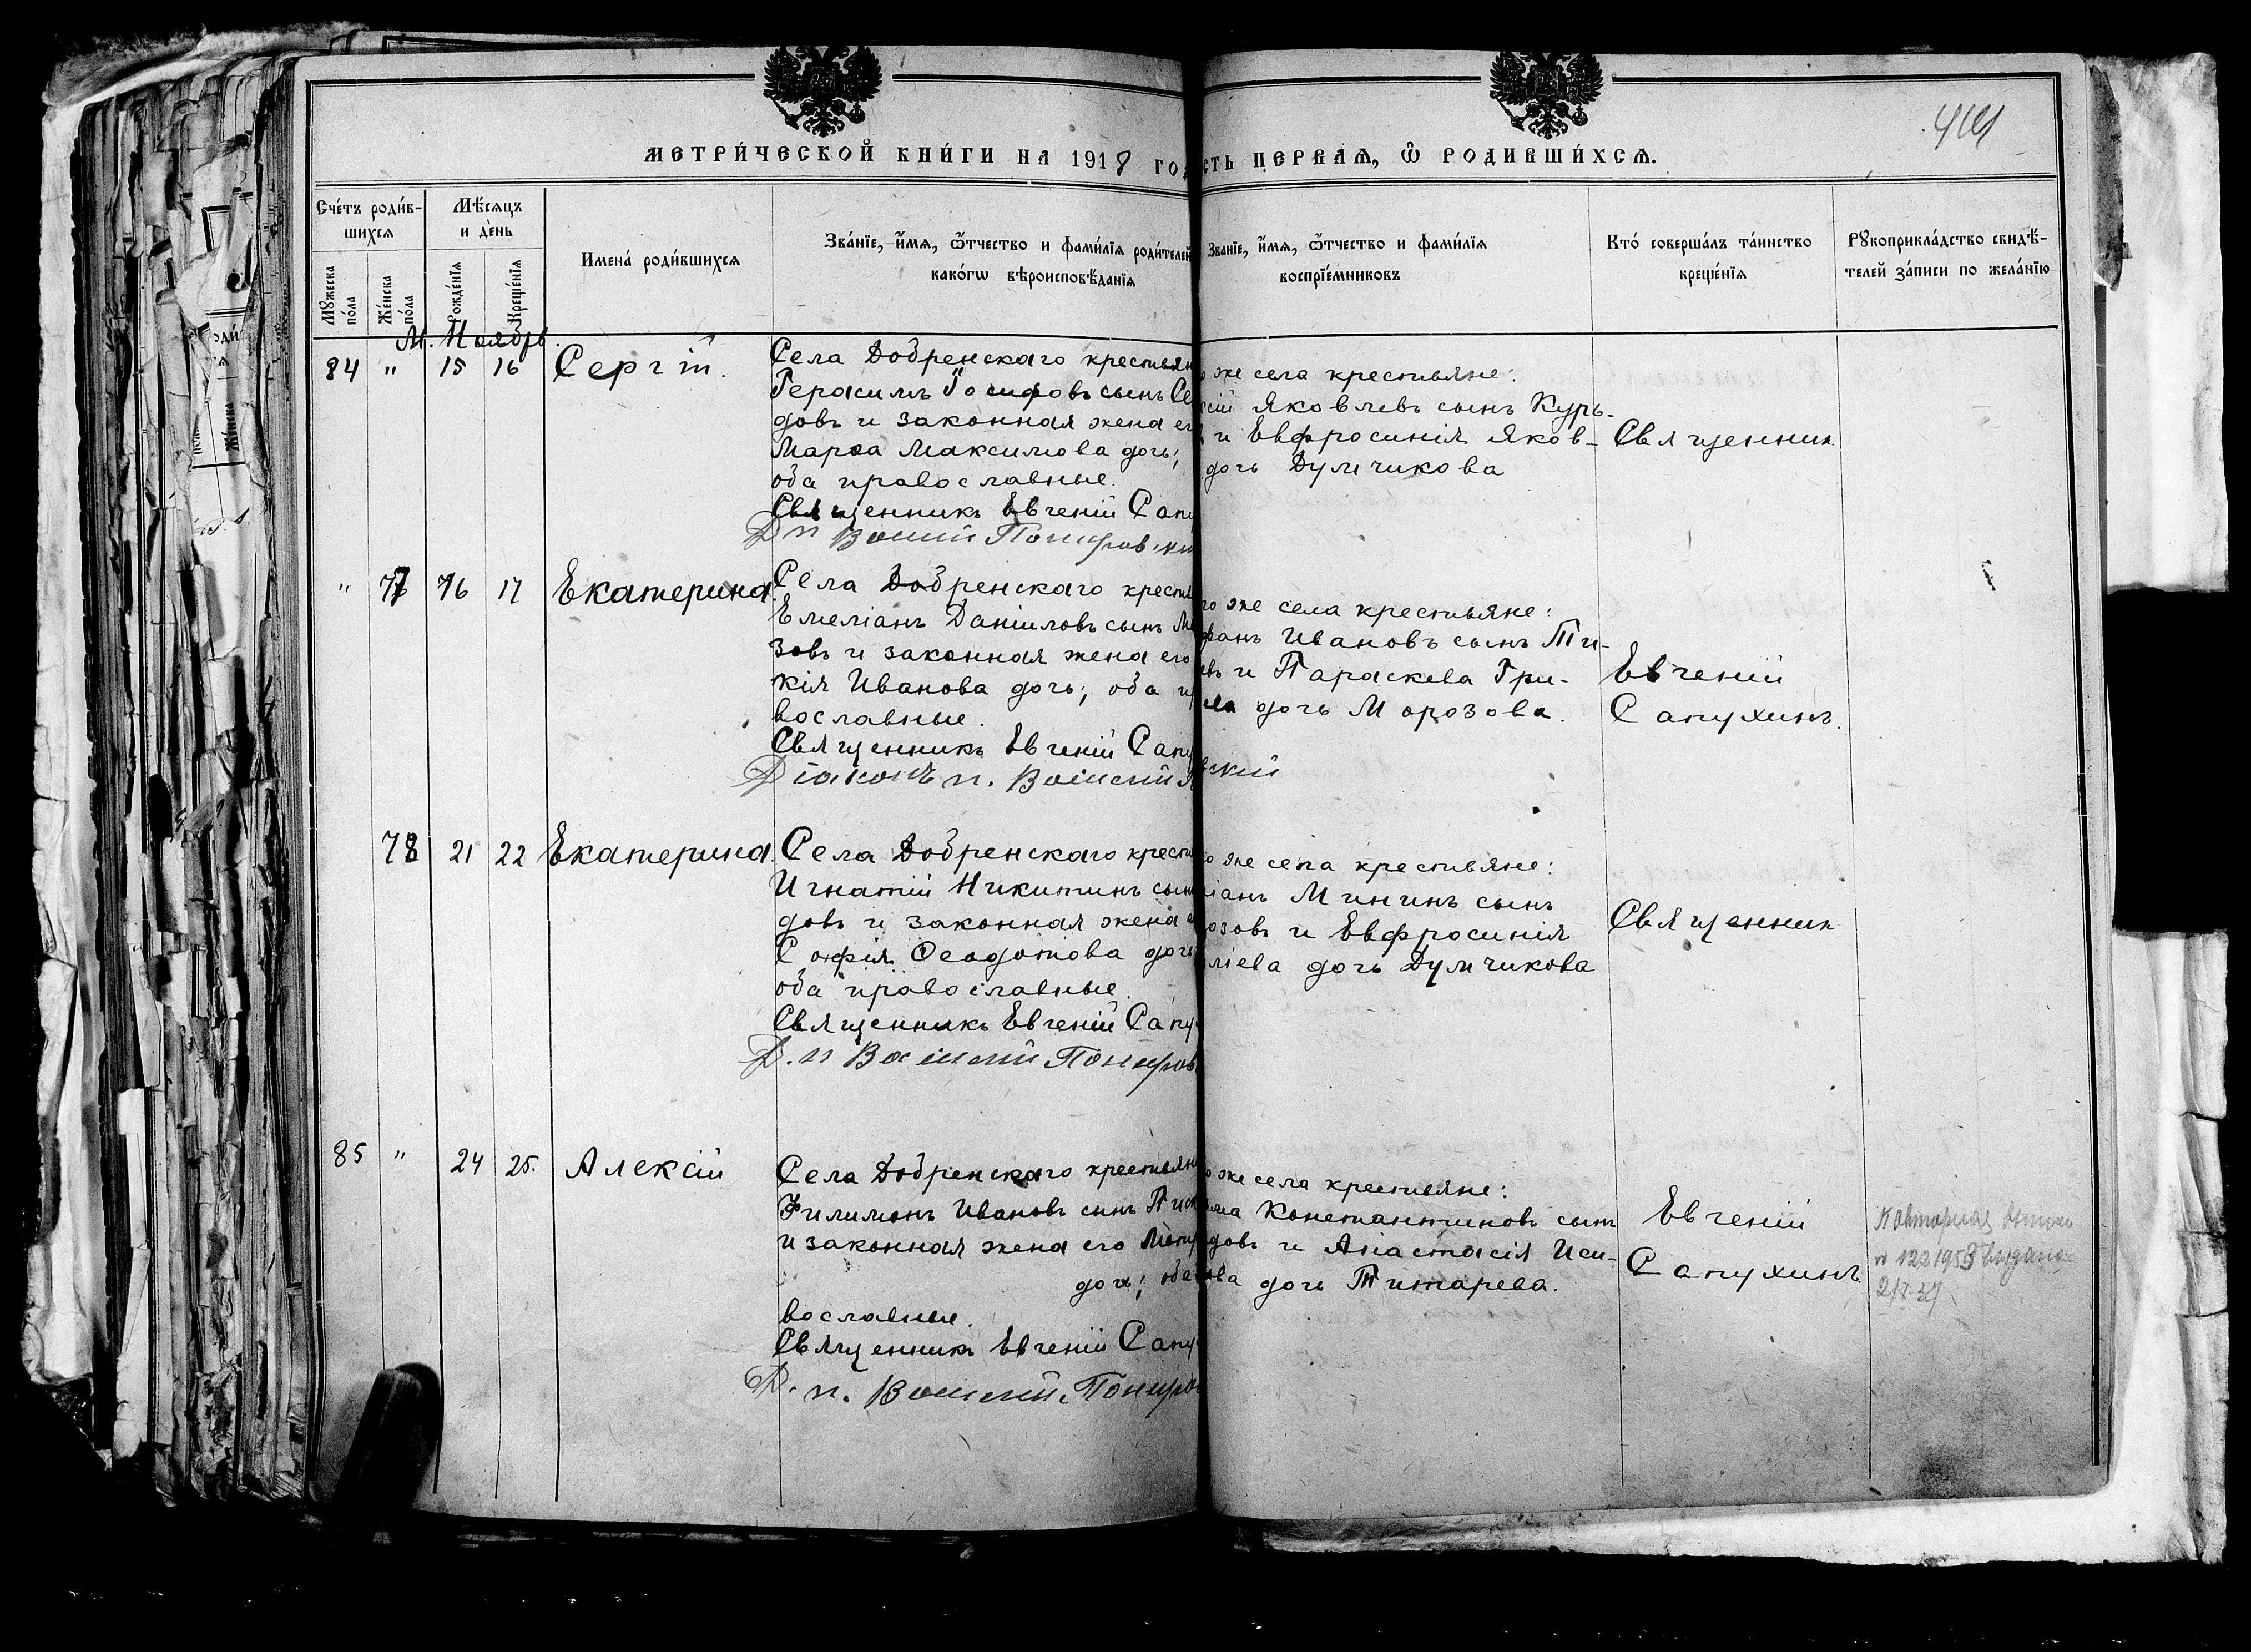 МЕТРИ́ЧЕСКОЙ КНИ́ГИ НА 1918 ГО
СТЬ ПЕ́РВАѦ, Ѡ҆ РОДИ́ВШИХСѦ.
Сче́тъ роди́в-
шихсѧ
Мꙋ́жеска по́ла
Же́нска по́ла
Мѣ́сѧцъ
и де́нь
Рожде́нїѧ
Креще́нїѧ
Имена̀ роди́вшихсѧ
Зва́нїе, и҆́мѧ, ѻ҆́тчество и фами́лїѧ роди́телей
како́гѡ вѣроисповѣ́данїѧ
Зва́нїе, и҆́мѧ, ѻ҆́тчество и фами́лїѧ
воспрїе́мниковъ
Кто̀ соверша́лъ та́инство
креще́нїѧ
Рꙋкоприкла́дство свидѣ́-
телей за́писи по жела́нїю
М. Ноябрь.
84 " 15 16 Сергій.
Села Добренскаго крестьян
Герасимъ Іосифовъ сынъ Се
довъ и законная жена ег
Марѳа Максимова дочь;
оба православные.
Священникъ Евгеній Сапу
Д п Василий Понировски
о же села крестьяне:
ксій Яковлевъ сынъ Курь-
и Евфросинія Яков-
дочь Думчикова
Священник
" 77 16 17 Екатерина
Села Добренскаго кресть
Емеліанъ Даніиловъ сынъ Мо
зовъ и законная жена его
кія Иванова дочь; оба пр
вославные.
Священникъ Евгеній Сапу
Діаконъ п. Василий П
го же села крестьяне:
фанъ Ивановъ сынъ Ти-
евъ и Параскева Гри-
ева дочь Морозова.
вский
Евгеній
Сапухинъ.
78 21 22 Екатерина.
Села Добренскаго кресть
Игнатій Никитинъ сын
довъ и законная жена е
Софія Ѳеодотова дочь
оба православные.
Священникъ Евгеній Сапу
Д. п Василий Пониров
о же села крестьяне:
ліанъ Мининъ сынъ
розовъ и Евфросинія
ліева дочь Думчикова
Священник
85 " 24 25. Алексій
Села Добренскаго крестьян
Филимонъ Ивановъ сынъ
и законная жена его
дочь; оба
вославные.
Священникъ Евгеній Сапу
Д. п. Василий Пониро
о же села крестьяне:
Константиновъ сынъ
довъ и Анастасія Иси-
ова дочь Титарева.
Евгеній
Сапухинъ.
Повторная